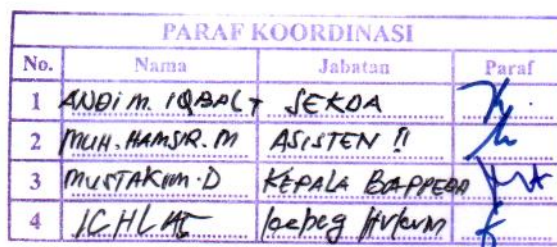 PARAF KOORDINASI
No. Nama Jabatan Paraf
1 ANDI M. IQBAL T SEKDA
2 MUH. HAMSIR. M ASISTEN II
3 MUSTAKIM. D KEPALA BAPPEDA
4